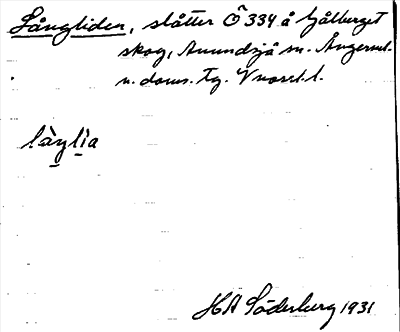 Långliden, slåtter Ö 334 å Gålberget
skog, Anundsjö sn. Ångerml.
n. doms. Tg. V
làŋlìa
HA Söderberg 1931